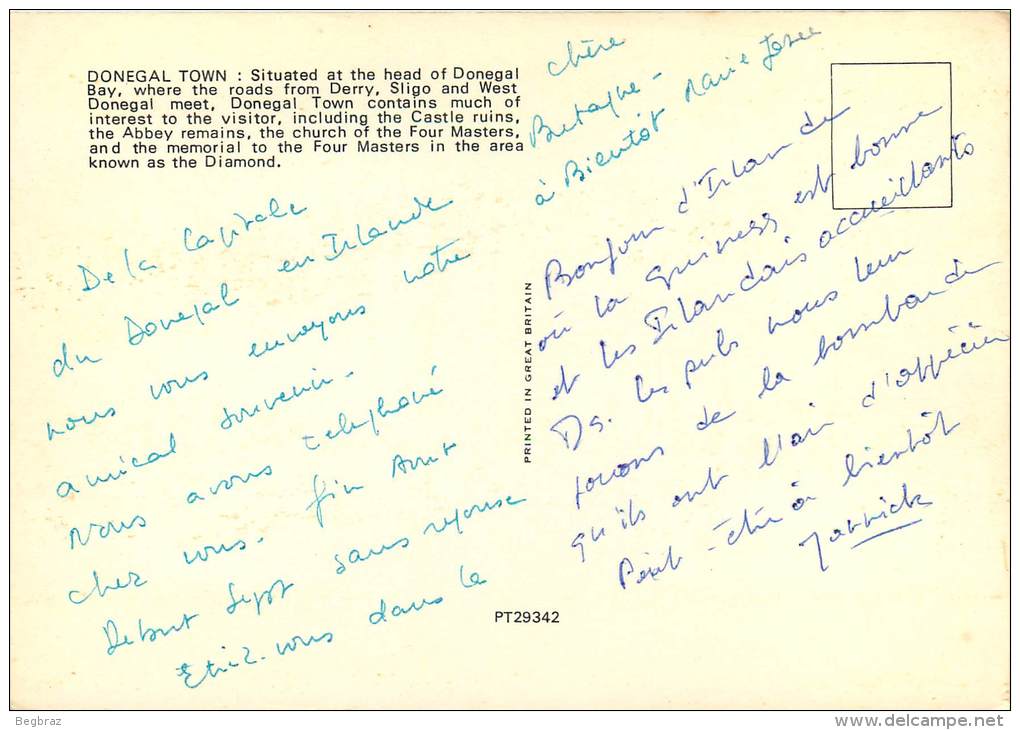 DONEGAL TOWN : Situated at the head of Donegal
Bay, where the roads from Derry, Sligo and West
Donegal meet, Donegal Town contains much of
interest to the visitor, including the Castle ruins,
the Abbey remains, the church of the Four Masters,
and the memorial to the Four Masters in the area
known as the Diamond.
De la Capitale
du Donegal en Irlande
nous vous envoyons notre
amical souvenir.
Nous avons telephoné
chez vous. fin Aout
Debut Sept sans reponse
Etiez-vous dans la
chère
Bretagne -
à Bientôt Marie Josée
PRINTED IN GREAT BRITAIN
Bonjour d'Irlande
où la guiness est bonne
et les Irlandais accueillants
Ds. les pubs nous leur
jouons de la bombarde
qu'ils ont l'air d'apprécier
Peut-être à bientôt
Yannick
PT29342
Begbraz
www.delcampe.net